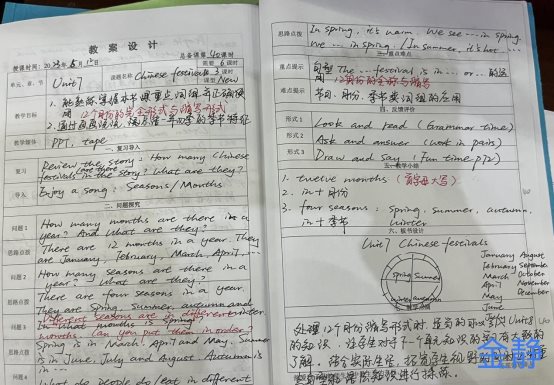 教案设计
总备课第40课时
授课时间：2023年5月15日
课型 6 课时
单元、章、节
Unit7
课题名称
Chinese festivals
3课时
New
教学目标
12个月份的完全形式与缩写形式
教学媒体
PPT, tape
一、复习导入
复习
Review the story: How many Chinese
festivals are there in the story? What are they?
导入
Enjoy a song: Seasons / Months
二、问题探究
问题 1
How many months are there in a
year? And what are they?
思路点拨
There are 12 months in a year. They
are January, February, March, April, ...
问题 2
How many seasons are there in a
year? What are they?
思路点拨
There are four seasons in a year.
They are Spring, Summer, autumn and
winter
问题 3
What months is spring?
months. Can you put them in order?
思路点拨
Spring is in March, April and May. Summer
is in June, July and August. Autumn is
in ...
What do people do / eat in different
思路点拨
In spring, it's warm. We see ... in spring.
We ... in spring. / In summer, it's hot ...
三、重点难点
重点提示
句型 The ... festival is in ... or ... 的运用
12月份的完全与缩写
难点提示
节日、月份、季节类词组的应用
四、反馈评价
形式 1
Look and read (Grammar time)
形式 2
Ask and answer (work in pairs)
形式 3
Draw and say (Fun time P72)
五、教学小结
1. twelve months (首字母大写)
2. in + 月份
3. four seasons: spring, summer, autumn,
winter
in + 季节
六、板书设计
Unit7 Chinese festivals
spring
summer
winter
autumn
January August
February September
March October
April November
May December
June
July
处理12个月份缩写形式时，适当的可以联系到Unit8
的知识，让学生对于下一个单元知识的学习有更好的
了解。结合实际生活，拓宽学生视野
金静